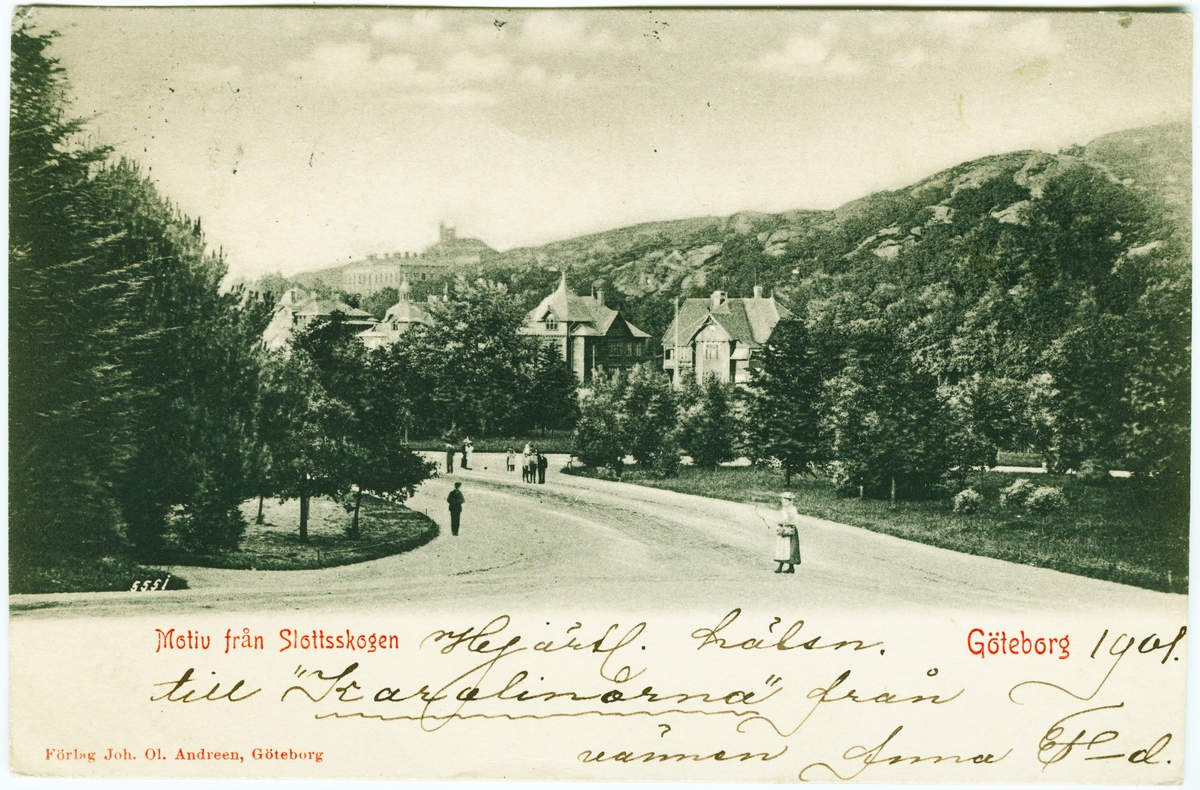 5551
Motiv från Slottsskogen Hjärtl. hälsn. Göteborg 1901.
till "Karolinorna" från
vännen Anna F-d.
Förlag Joh. Ol. Andreen, Göteborg